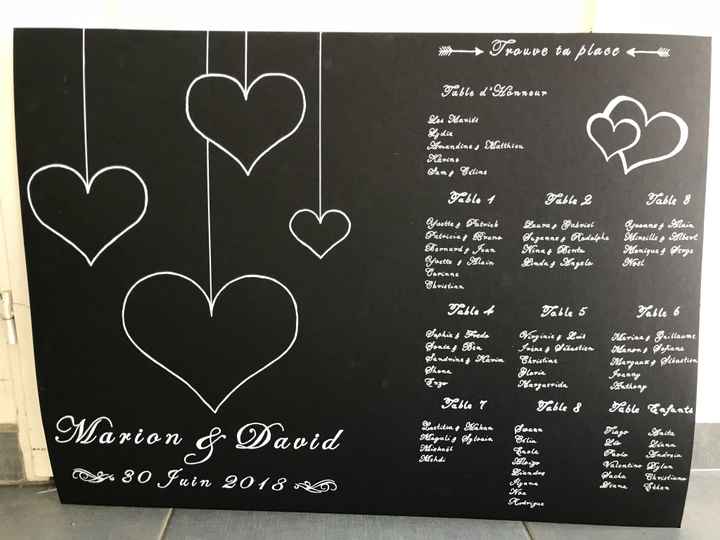 Trouve ta place
Table d'Honneur
Les Mariés
Lydie
Amandine & Matthieu
Karine
Sam & Céline
Table 1
Yvette & Patrick
Patricia & Bruno
Bernard & Jean
Yvette & Alain
Corinne
Christian
Table 2
Laura & Gabriel
Suzanne & Rodolphe
Nina & Berto
Linda & Angelo
Table 3
Yvonne & Alain
Mireille & Albert
Monique & Serge
Noël
Table 4
Sophie & Fredo
Sonia & Ben
Sandrine & Kevin
Shana
Enzo
Table 5
Virginie & Luis
Irène & Sébastien
Christine
Gloria
Marguerida
Table 6
Marina & Guillaume
Manon & Sofiane
Margaux & Sébastien
Joanny
Anthony
Table 7
Laetitia & Hakan
Magali & Sylvain
Mickaël
Mehdi
Table 8
Célia
Diego
Léandre
Noa
Rodrigue
Table Enfants
Tiago
Léo
Paolo
Valentino
Sacha
Diane
Anita
Liann
Andrein
Dylan
Christiano
Ethan
Marion & David
30 Juin 2018